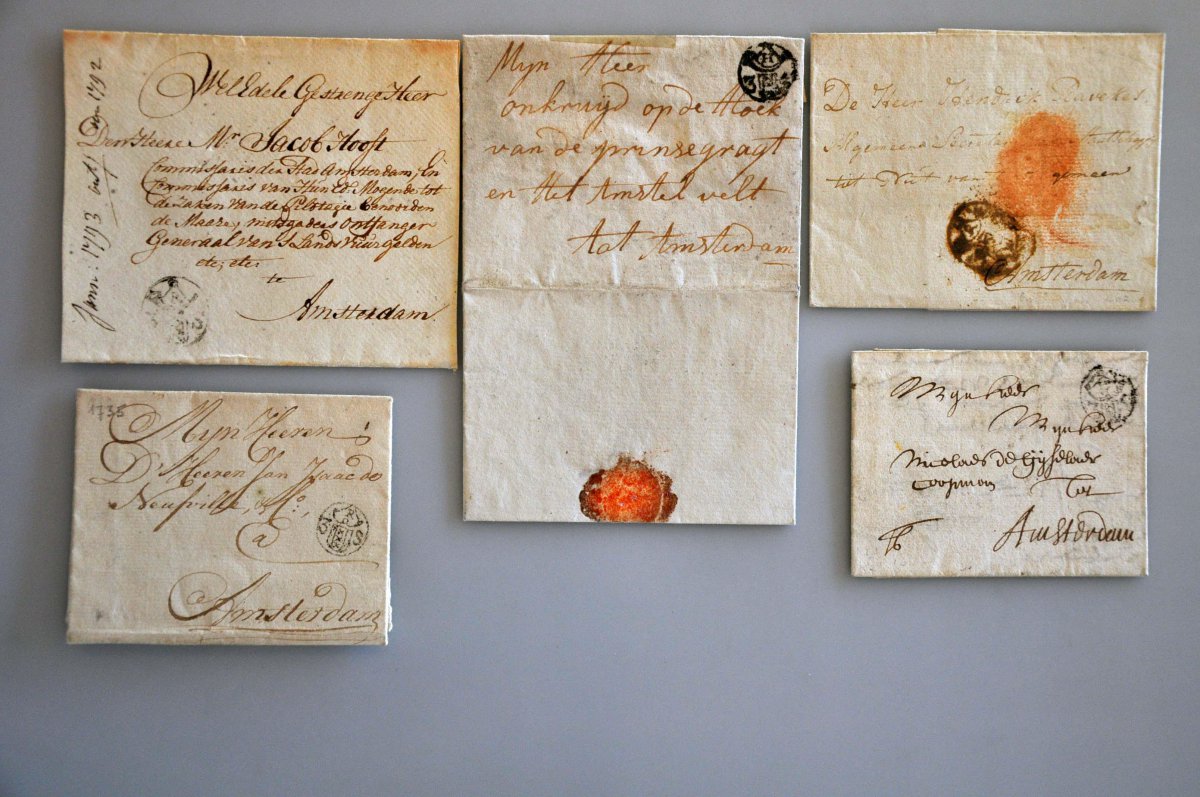 WelEdele Gestrenge Heer
Den Heere Mr Jacob Hooft
Commissaris der Stad Amsterdam, En
Commissaris van Hun Ed. Mogende tot
de Zaken van de Pilotagie benoorden
de Maaze, mitsgaders Ontfanger
Generaal van 's Lands
etc, etc.
te
Amsterdam
Janr: 1793
1792
Myn Heer
onkruijd op de Hoek
van de prinsegragt
en Het Amstel velt
tot Amsterdam
De Heer Hendrik
Algemeene
tot Nut van gemeen
Amsterdam
1735
Myn Heeren
D' Heeren Jan Isaac de
Neufville, & Co,
a
Amsterdam
Myn heer
Myn heer
Nicolaes de
Coopman Tot
Amsterdam